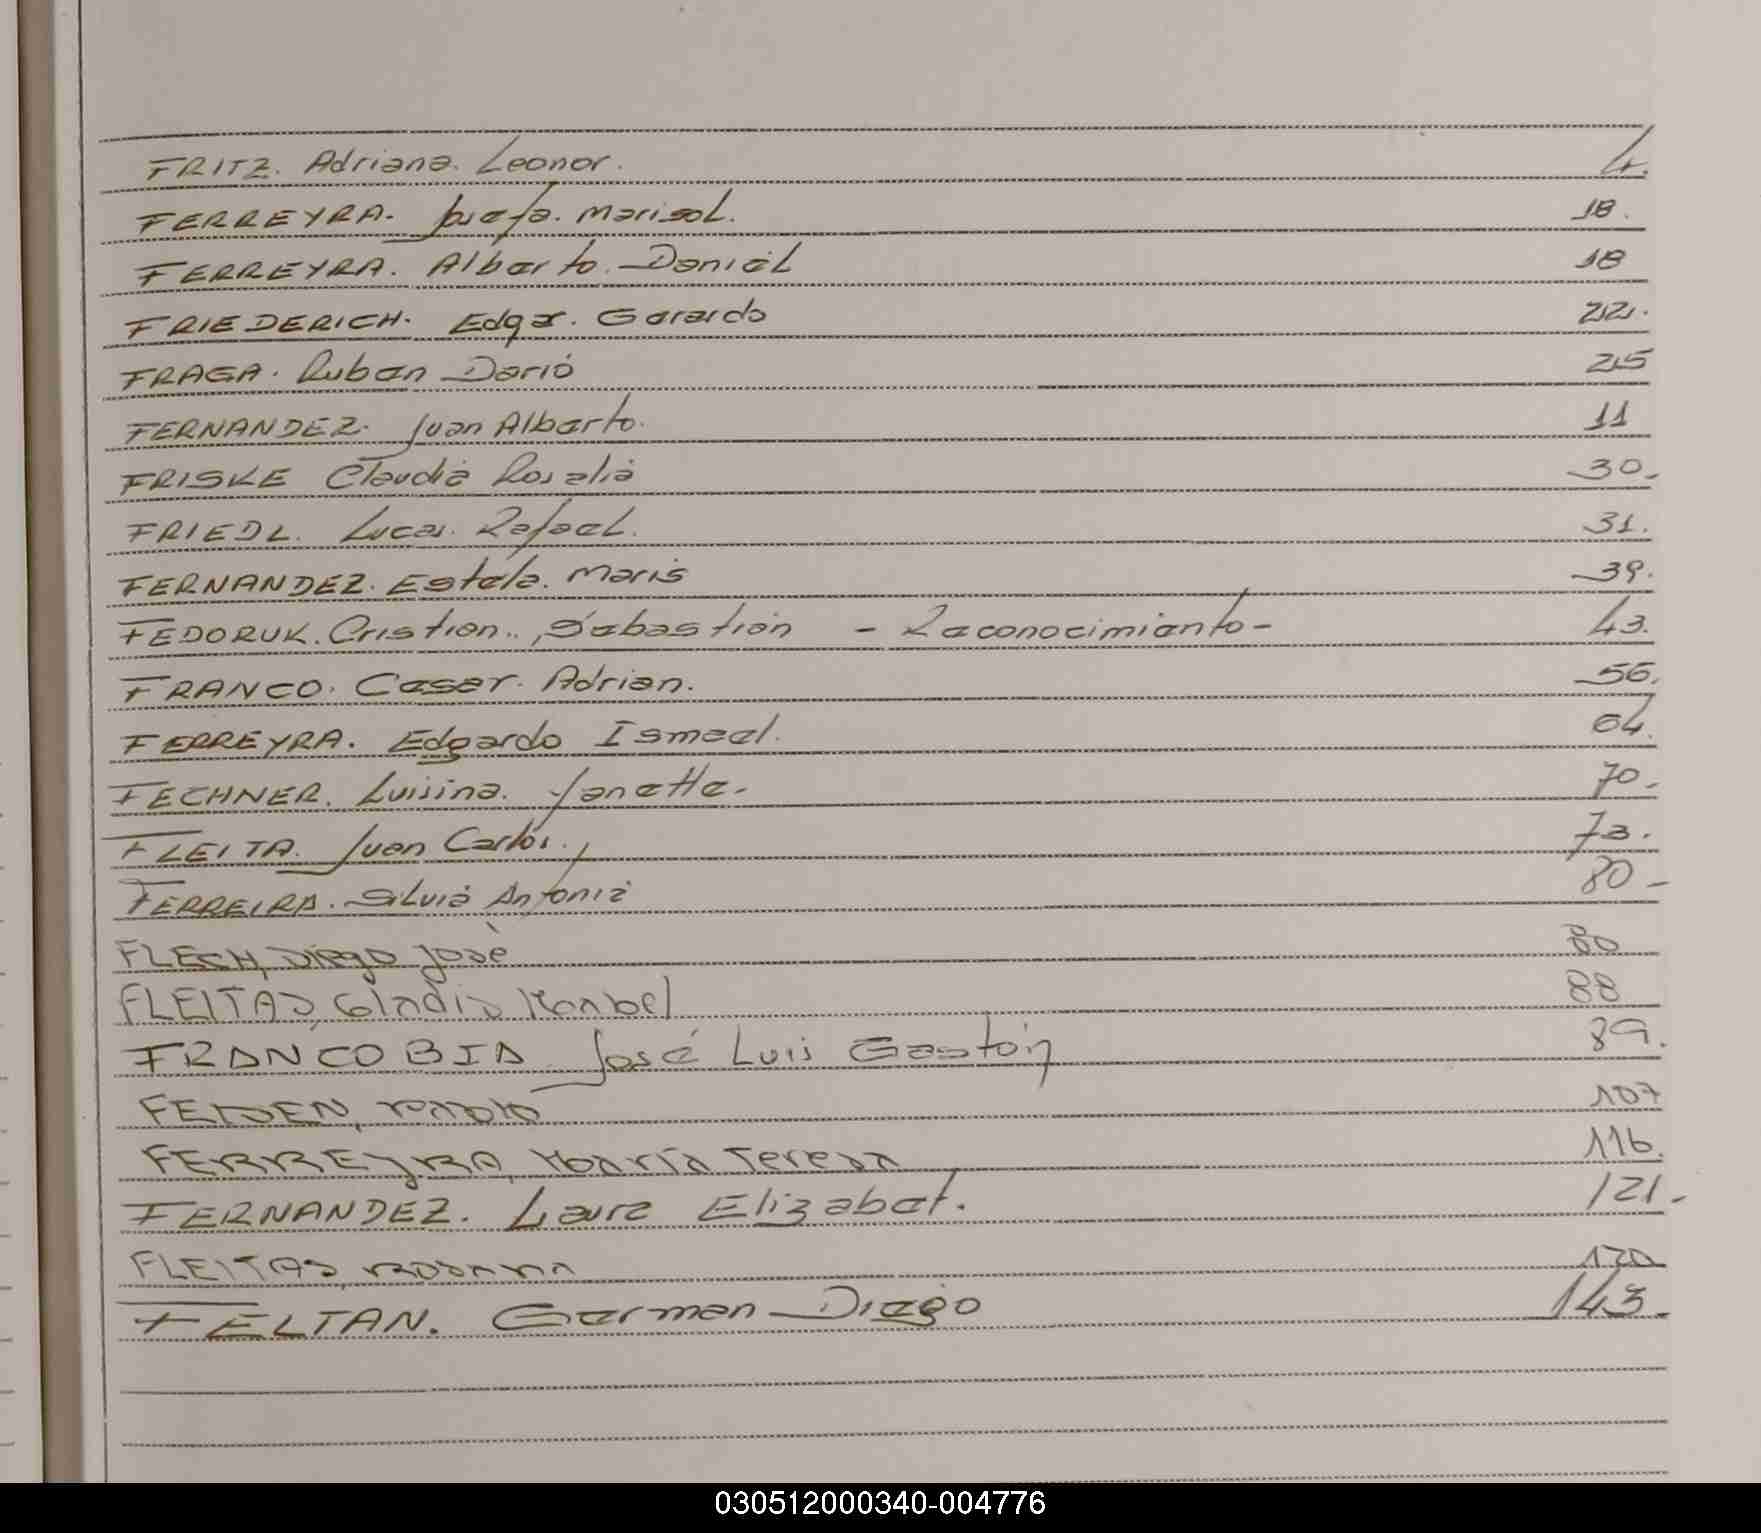 FRITZ. Adriana. Leonor. 4.
FERREYRA. Josefa. Marisol. 18.
FERREYRA. Alberto. Daniel 18
FRIEDERICH. Edgar. Gerardo 22.
FRAGA. Ruben Dario 25
FERNANDEZ. Juan Alberto. 11
FRISKE Claudia Rosalia 30.
FRIEDL. Lucas. Rafael. 31.
FERNANDEZ. Estela. Maris 39.
FEDORUK. Cristian.. Sebastian - Reconocimiento - 43.
FRANCO. Cesar. Adrian. 56.
FERREYRA. Edgardo Ismael. 64.
FECHNER. Luisina. Yanette. 70.
FLEITA. Juan Carlos. 73.
FERREIRA. Silvia Antonia 80 -
FLECH, Diego José 80
FLEITAS, Gladis Mabel 88
FRANCO BIA José Luis Gastón 89.
107
FERREYRA, María Teresa 116.
FERNANDEZ. Laura Elizabet. 121.
FLEITAS, Rosana
FELTAN. German Diego 143.
030512000340-004776